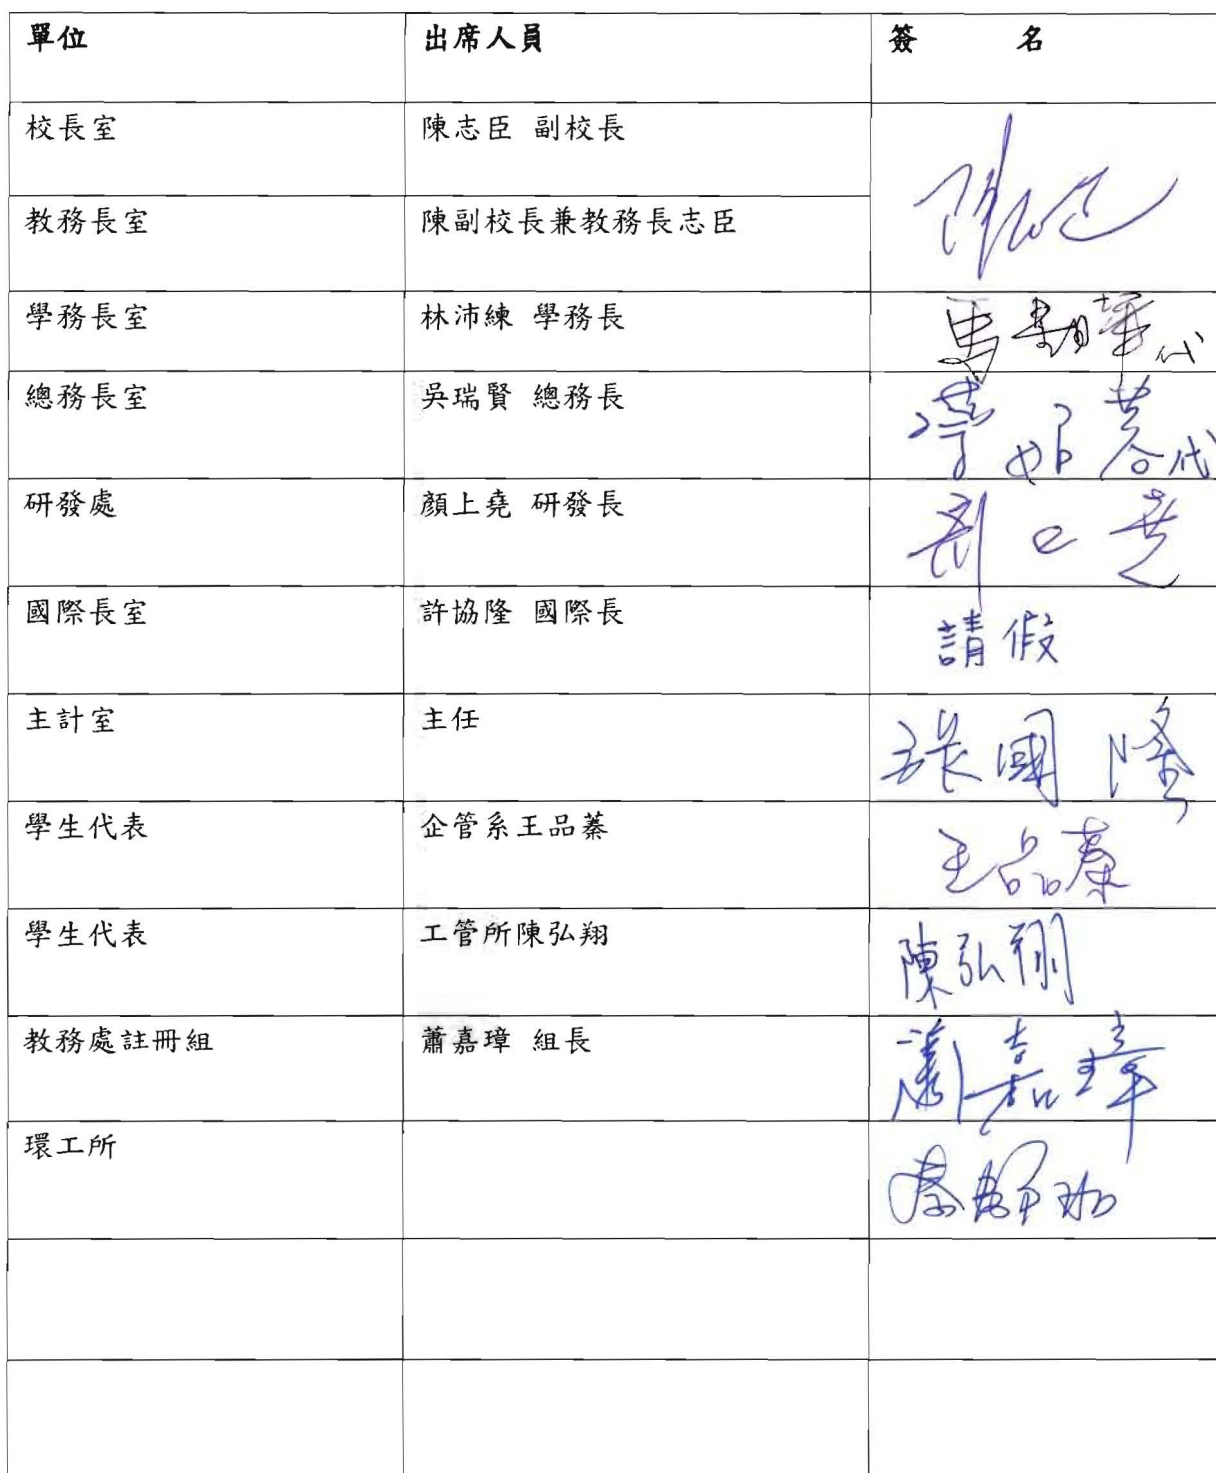 單位 出席人員 簽 名
校長室 陳志臣 副校長
教務長室 陳副校長兼教務長志臣
學務長室 林沛練 學務長 馬 代
總務長室 吳瑞賢 總務長 代
研發處 顏上堯 研發長
國際長室 許協隆 國際長 請假
主計室 主任 張國隆
學生代表 企管系王品蓁 王品蓁
學生代表 工管所陳弘翔 陳弘翔
教務處註冊組 蕭嘉璋 組長 蕭嘉璋
環工所